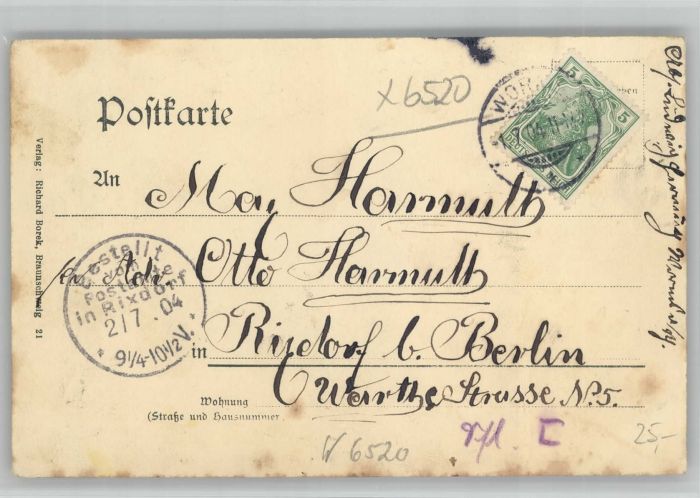 x 6520
Postkarte
WOR
5
5
An
Max Harmuth
per Adr. Otto Harmuth
in Rixdorf b. Berlin
Warthe Strasse No. 5.
Wohnung
(Straße und Hausnummer
Bestellt
vom
Postamte
in Rixdorf
2/7. 04
* 9 1/4-10 1/2 V. *
Verlag: Richard Borek, Braunschweig 21
Abs. Ludwig
W 6520
I
25,-